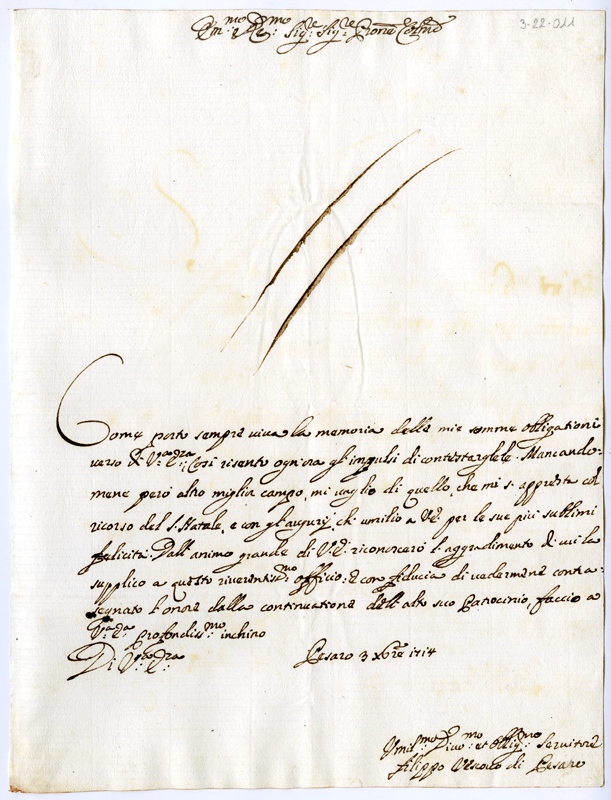 3-22-011
Em.mo e R.mo Sig.re Sig.re Prone Col.mo
Come porto sempre viva la memoria delle mie somme obligationi
verso di V.ra Em.za: Così risento ogn'ora gl'impulsi di contestarglele. Mancando-
mene però altro miglior campo, mi vaglio di quello, che mi s'appresta col
ricorso del S. Natale, e con gl'augurij, ch'umilio a V.E. per le sue più sublimi
felicità. Dall'animo grande di V.E. riconoscerò l'aggradimento di cui la
supplico a questo riverentiss.mo officio: e con fiducia di vedermene conta-
segnato l'onore dalla continuatione dell'alto suo Patrocinio, faccio a
V.ra Em.za profondiss.mo inchino
Di V.ra Em.za Pesaro 3 Xbre 1714
Umil.mo Divo.mo et Obblig.mo Servitore
Filippo Vescovo di Pesaro